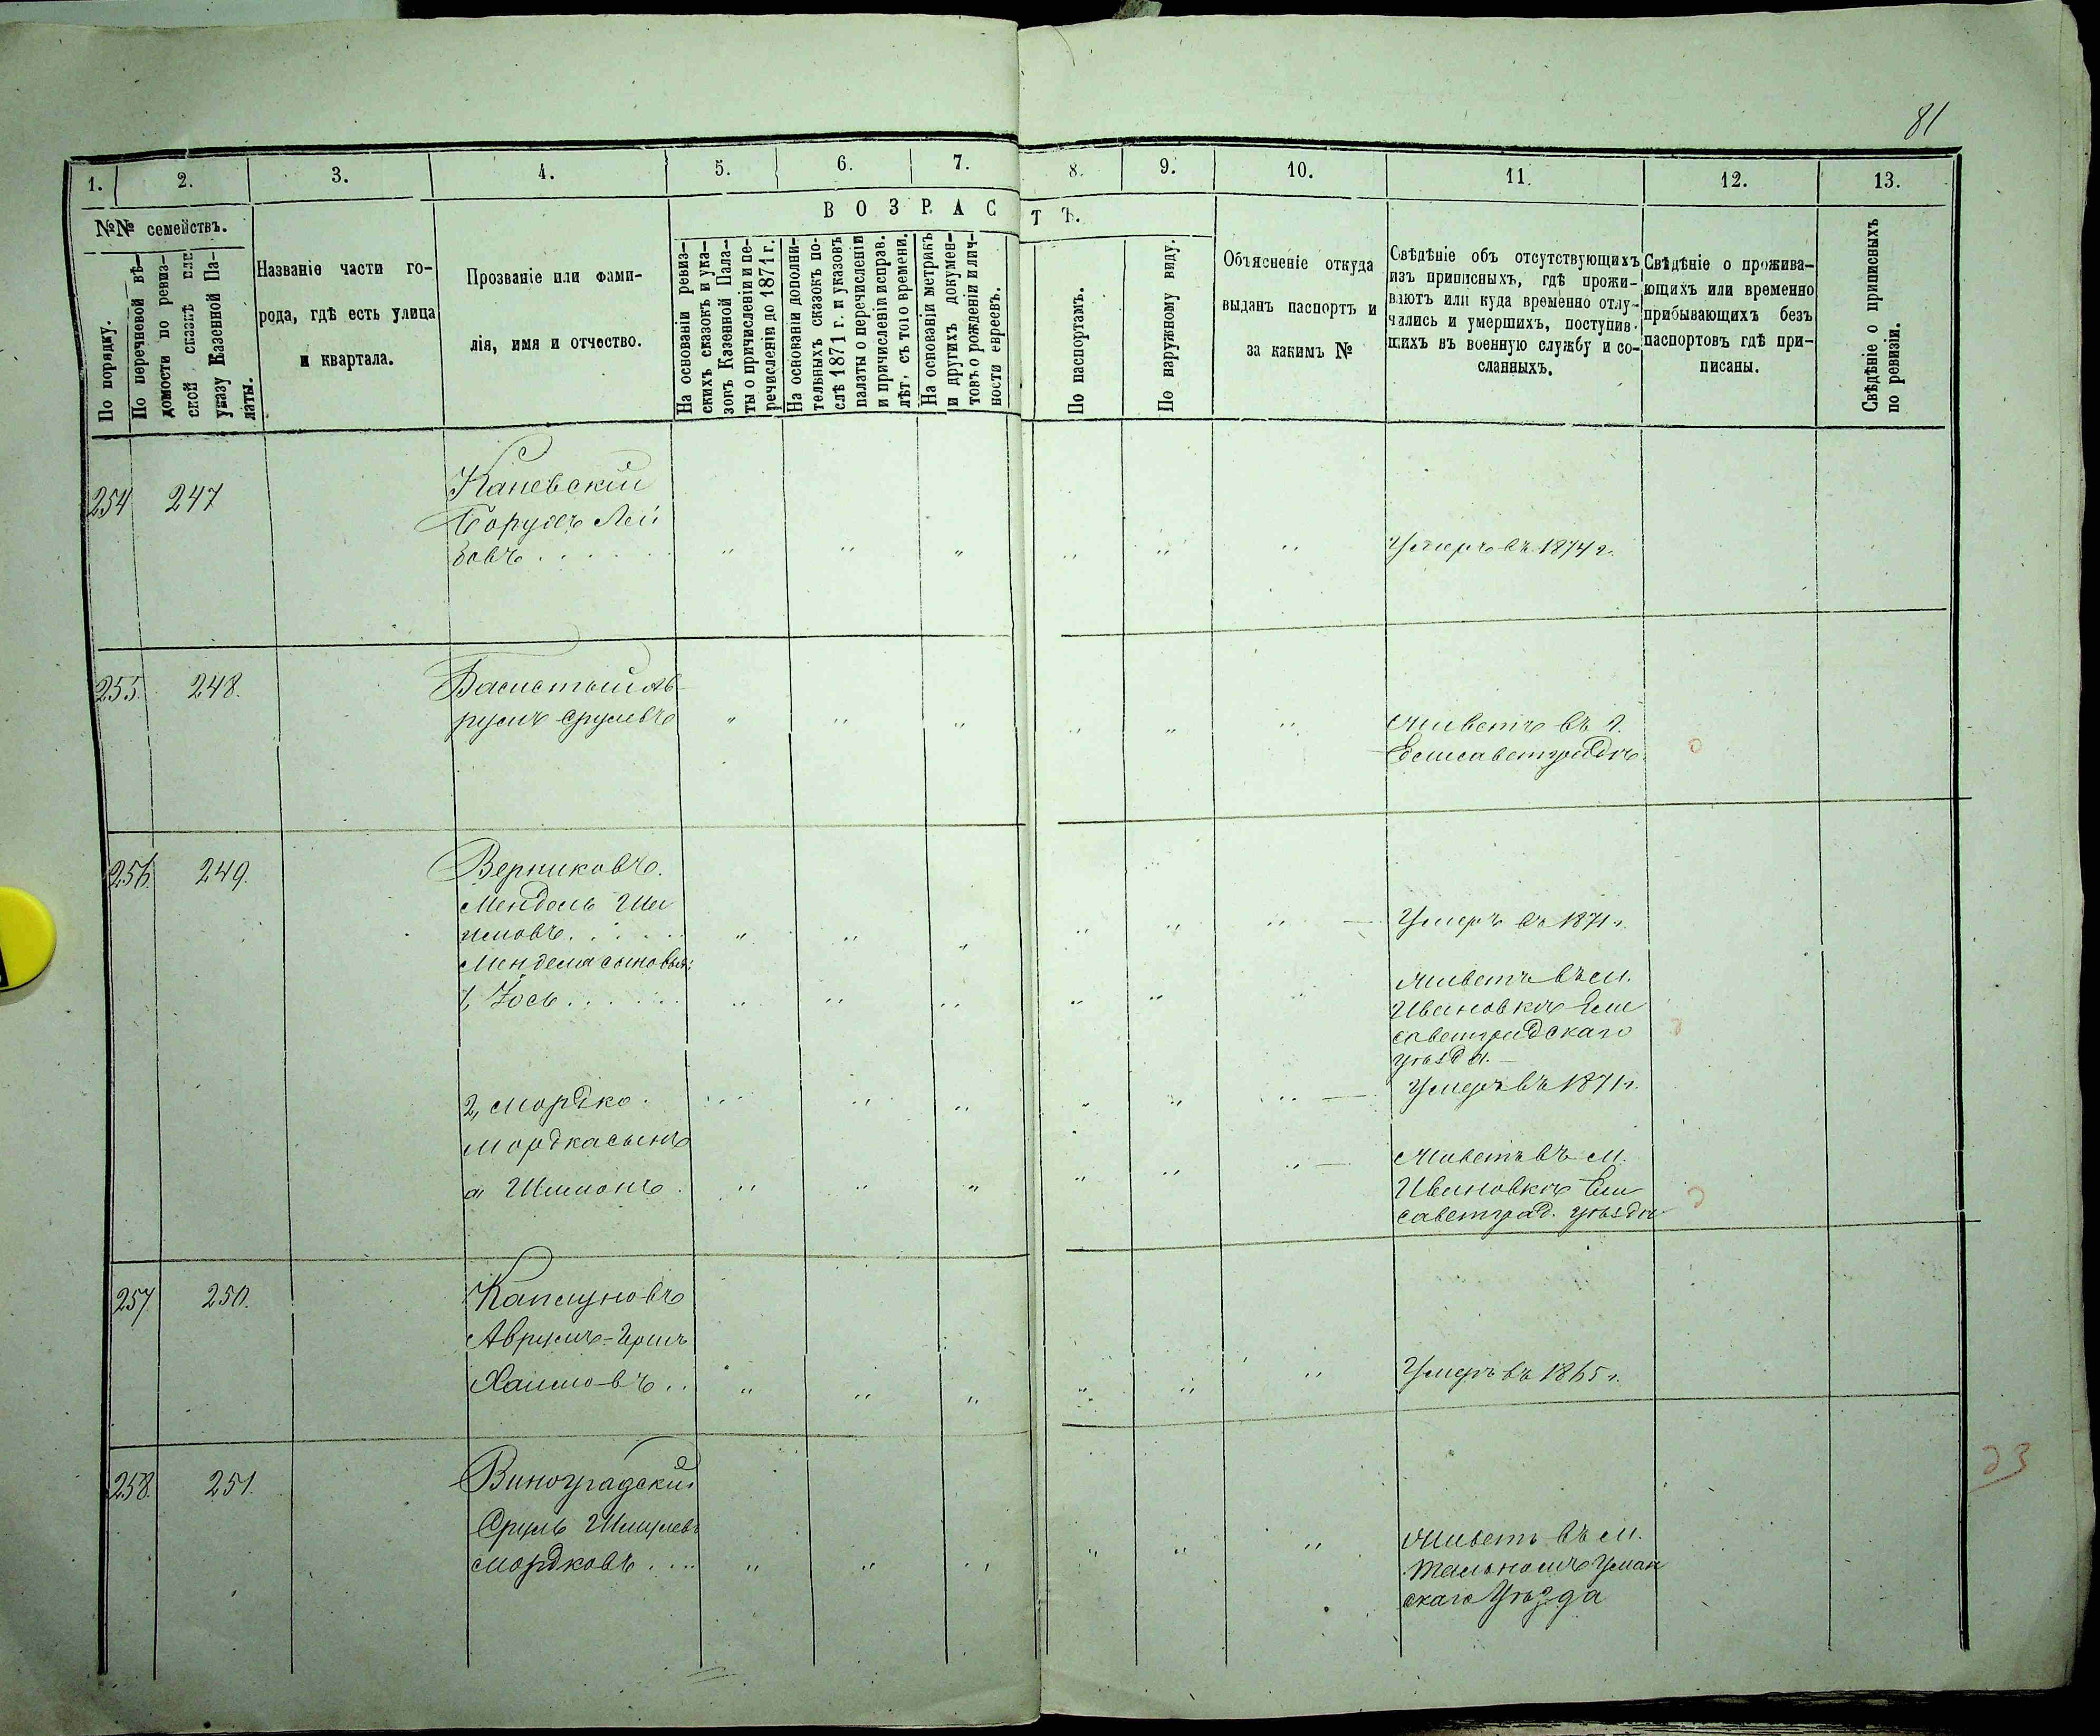 81
1. 2. 3. 4. 5. 6. 7. 8. 9. 10. 11. 12. 13.
№№ семействъ.
По порядку.
По перечневой вѣ-
домости по ревиз-
ской сказкѣ или
указу Казенной Па-
латы.
Названіе части го-
рода, гдѣ есть улица
и квартала.
Прозваніе или фами-
лія, имя и отчество.
ВОЗРАСТЪ.
На основаніи ревиз-
скихъ сказокъ и ука-
зовъ Казенной Пала-
ты о причисленіи и пе-
речисленіи до 1871 г.
На основаніи дополни-
тельныхъ сказокъ по-
слѣ 1871 г. и указовъ
палаты о перечисленіи
и причисленіи исправ.
лѣт. съ того времени.
На основаніи метрикъ
и другихъ докумен-
товъ о рожденіи и лич-
ности евреевъ.
По паспортамъ.
По наружному виду.
Объясненіе откуда
выданъ паспортъ и
за какимъ №
Свѣдѣніе объ отсутствующихъ
изъ приписныхъ, гдѣ прожи-
ваютъ или куда временно отлу-
чились и умершихъ, поступив-
шихъ въ военную службу и со-
сланныхъ.
Свѣдѣніе о прожива-
ющихъ или временно
прибывающихъ безъ
паспортовъ гдѣ при-
писаны.
Свѣдѣніе о приписныхъ
по ревизіи.
254 247
Каневскій
Борухъ Лей
бовъ
Умеръ въ 1874 г.
255. 248.
Басистый Ав-
румъ Срулевъ
Живетъ въ г.
Елисаветградѣ.
256. 249.
Верниковъ.
Мендель Ши
моновъ
Умеръ въ 1871 г.
Менделя сыновья:
1, Іось
Живетъ въ м.
Ивановкѣ Ели
саветградскаго
уѣзда.
2, Мордко.
Умеръ въ 1871 г.
Мордка сынъ
а, Шимонъ
Живетъ въ м.
Ивановкѣ Ели
саветград. уѣздѣ
257 250.
Каплуновъ
Аврумъ-Гершъ
Хаимовъ..
Умеръ въ 1865 г.
258. 251.
Виноградскій
Сруль Шмулевъ
Мордковъ....
Живетъ въ м.
Тальномъ Уман
скаго Уѣзда
23